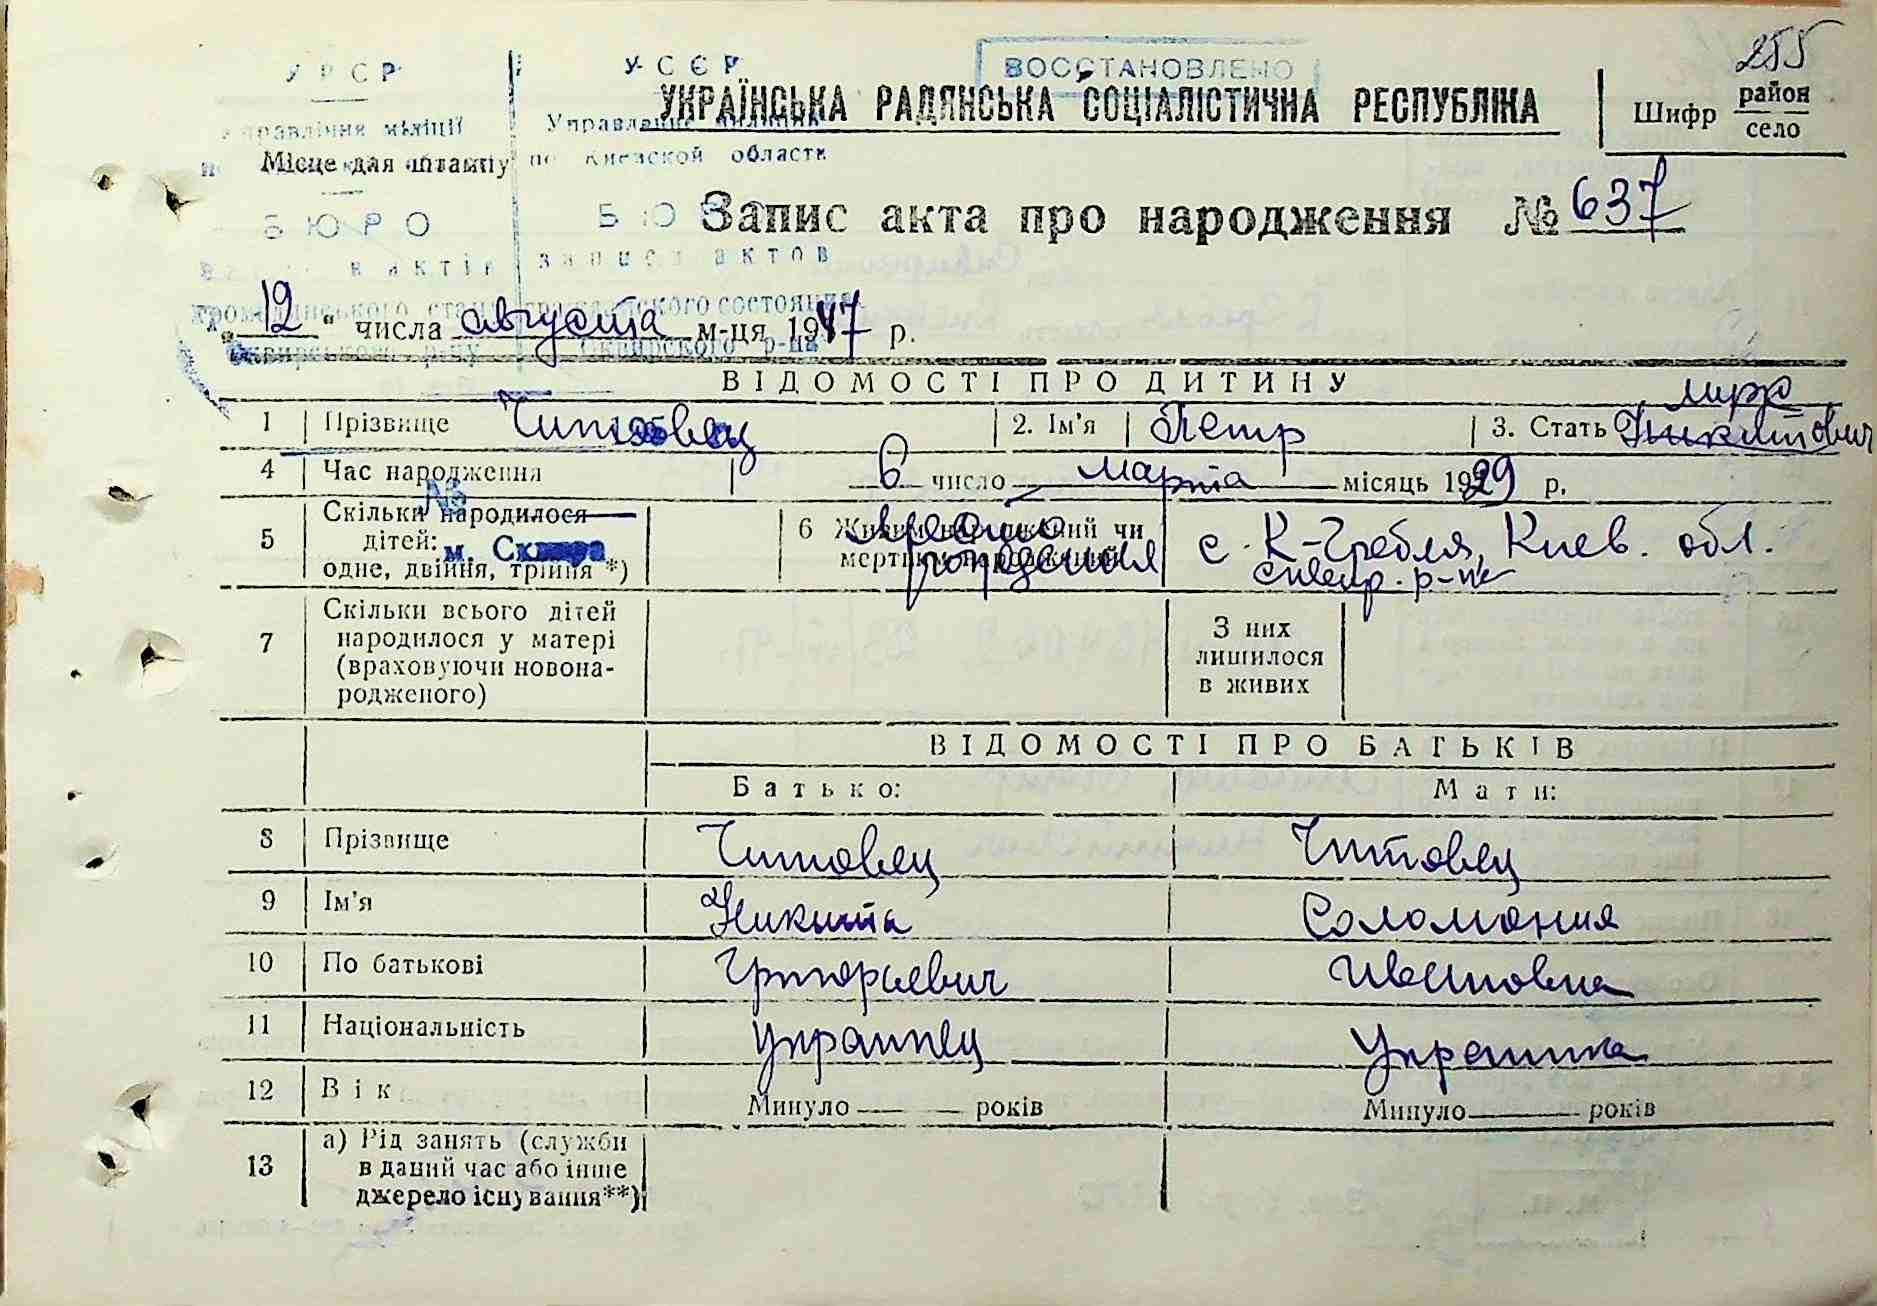 255
У Р С Р
У С С Р
ВОССТАНОВЛЕНО
УКРАЇНСЬКА РАДЯНСЬКА СОЦІАЛІСТИЧНА РЕСПУБЛІКА
Шифр район село
Управління міліції
Управление милиции
Місце для штампу
по Киевской области
Б Ю Р О
Б Ю Р О
Запис акта про народження № 637
актів
записи актов
громадянського стану
гражданского состояния
„12“ числа августа м-ця 1947 р.
Сквирского р-на
ВІДОМОСТІ ПРО ДИТИНУ
1 Прізвище Читовец 2. Ім'я Петр 3. Стать Никитович
4 Час народження 6 число марта місяць 1929 р.
№
м. Сквира
5 Скільки народилося
дітей:
одне, двійня, трійня *)
6 Живим народжений чи
мертвим народжений
место
рождения
с. К-Гребля, Киев. обл.
сквир. р-н
7 Скільки всього дітей
народилося у матері
(враховуючи новона-
родженого)
З них
лишилося
в живих
ВІДОМОСТІ ПРО БАТЬКІВ
Батько: Мати:
8 Прізвище Читовец Читовец
9 Ім'я Никита Соломония
10 По батькові Григорьевич Ивановна
11 Національність Украинец Украинка
12 Вік Минуло — років Минуло — років
13 а) Рід занять (служби
в даний час або інше
джерело існування**)